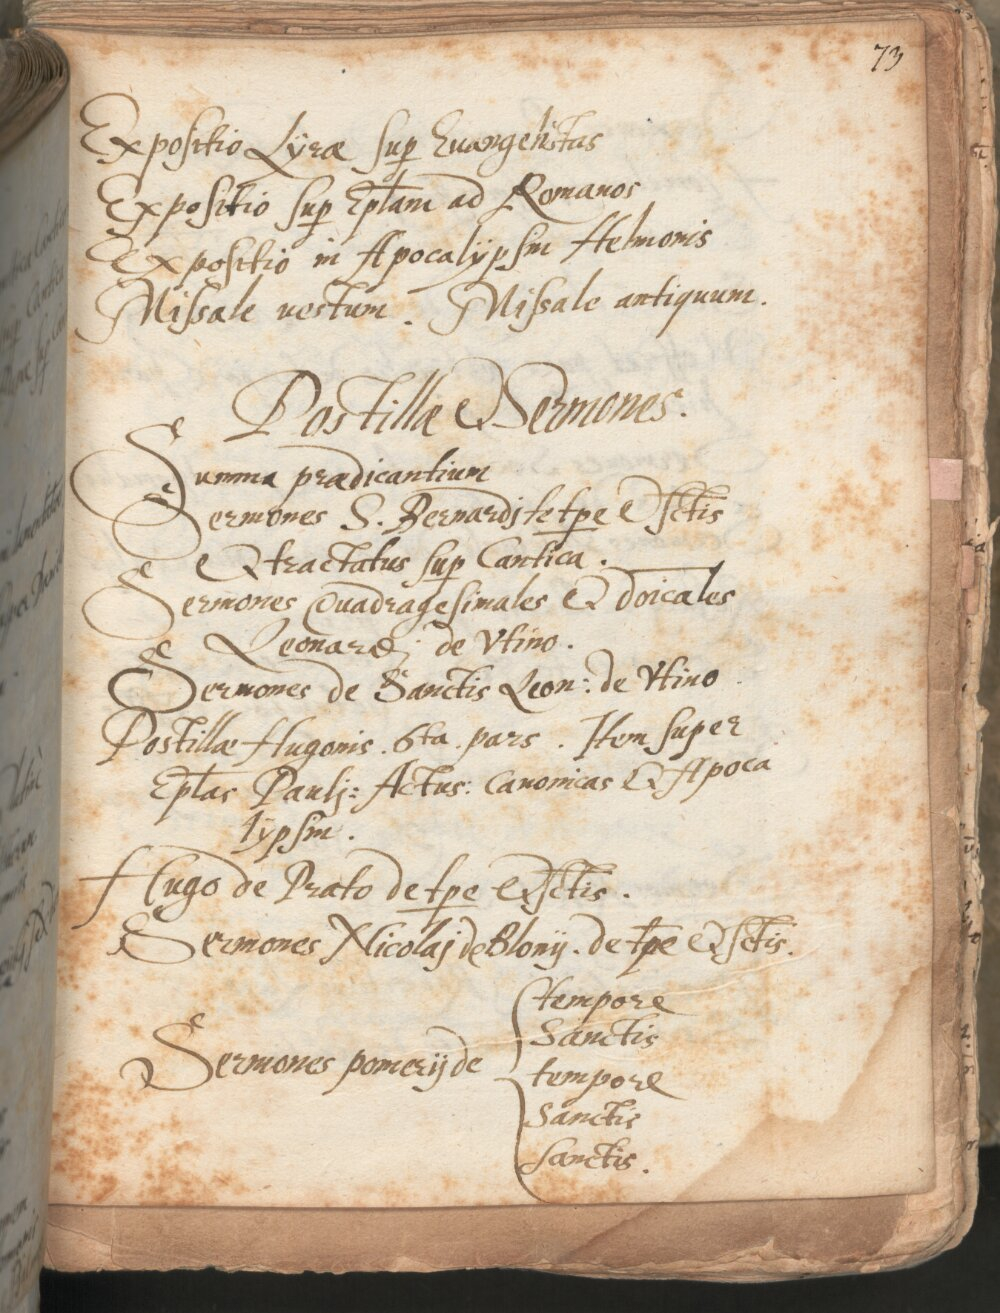 73
Expositio Lÿræ sup Euangelistas
Expositio sup Eplam ad Romanos
Expositio in Apocalÿpsm Helmonis
Missale uestum. Missale antiquum.
Postillæ & Sermones.
Summa prædicantium
Sermones S. Bernardj de tpe & Sctis
& tractatus sup Cantica.
Sermones Quadragesimales & doicales
Leonardj de Vtino.
Sermones de Sanctis Leon: de Vtino
Postillæ Hugonis. 6ta. pars. Item super
Eplas Paulj: Actus: Canonicas & Apoca
lÿpsm.
Hugo de Prato de tpe & Sctis.
Sermones Nicolaj de Blonÿ. de tpe & Sctis.
Sermones pomerij de
tempore
Sanctis
tempore
Sanctis
Sanctis.